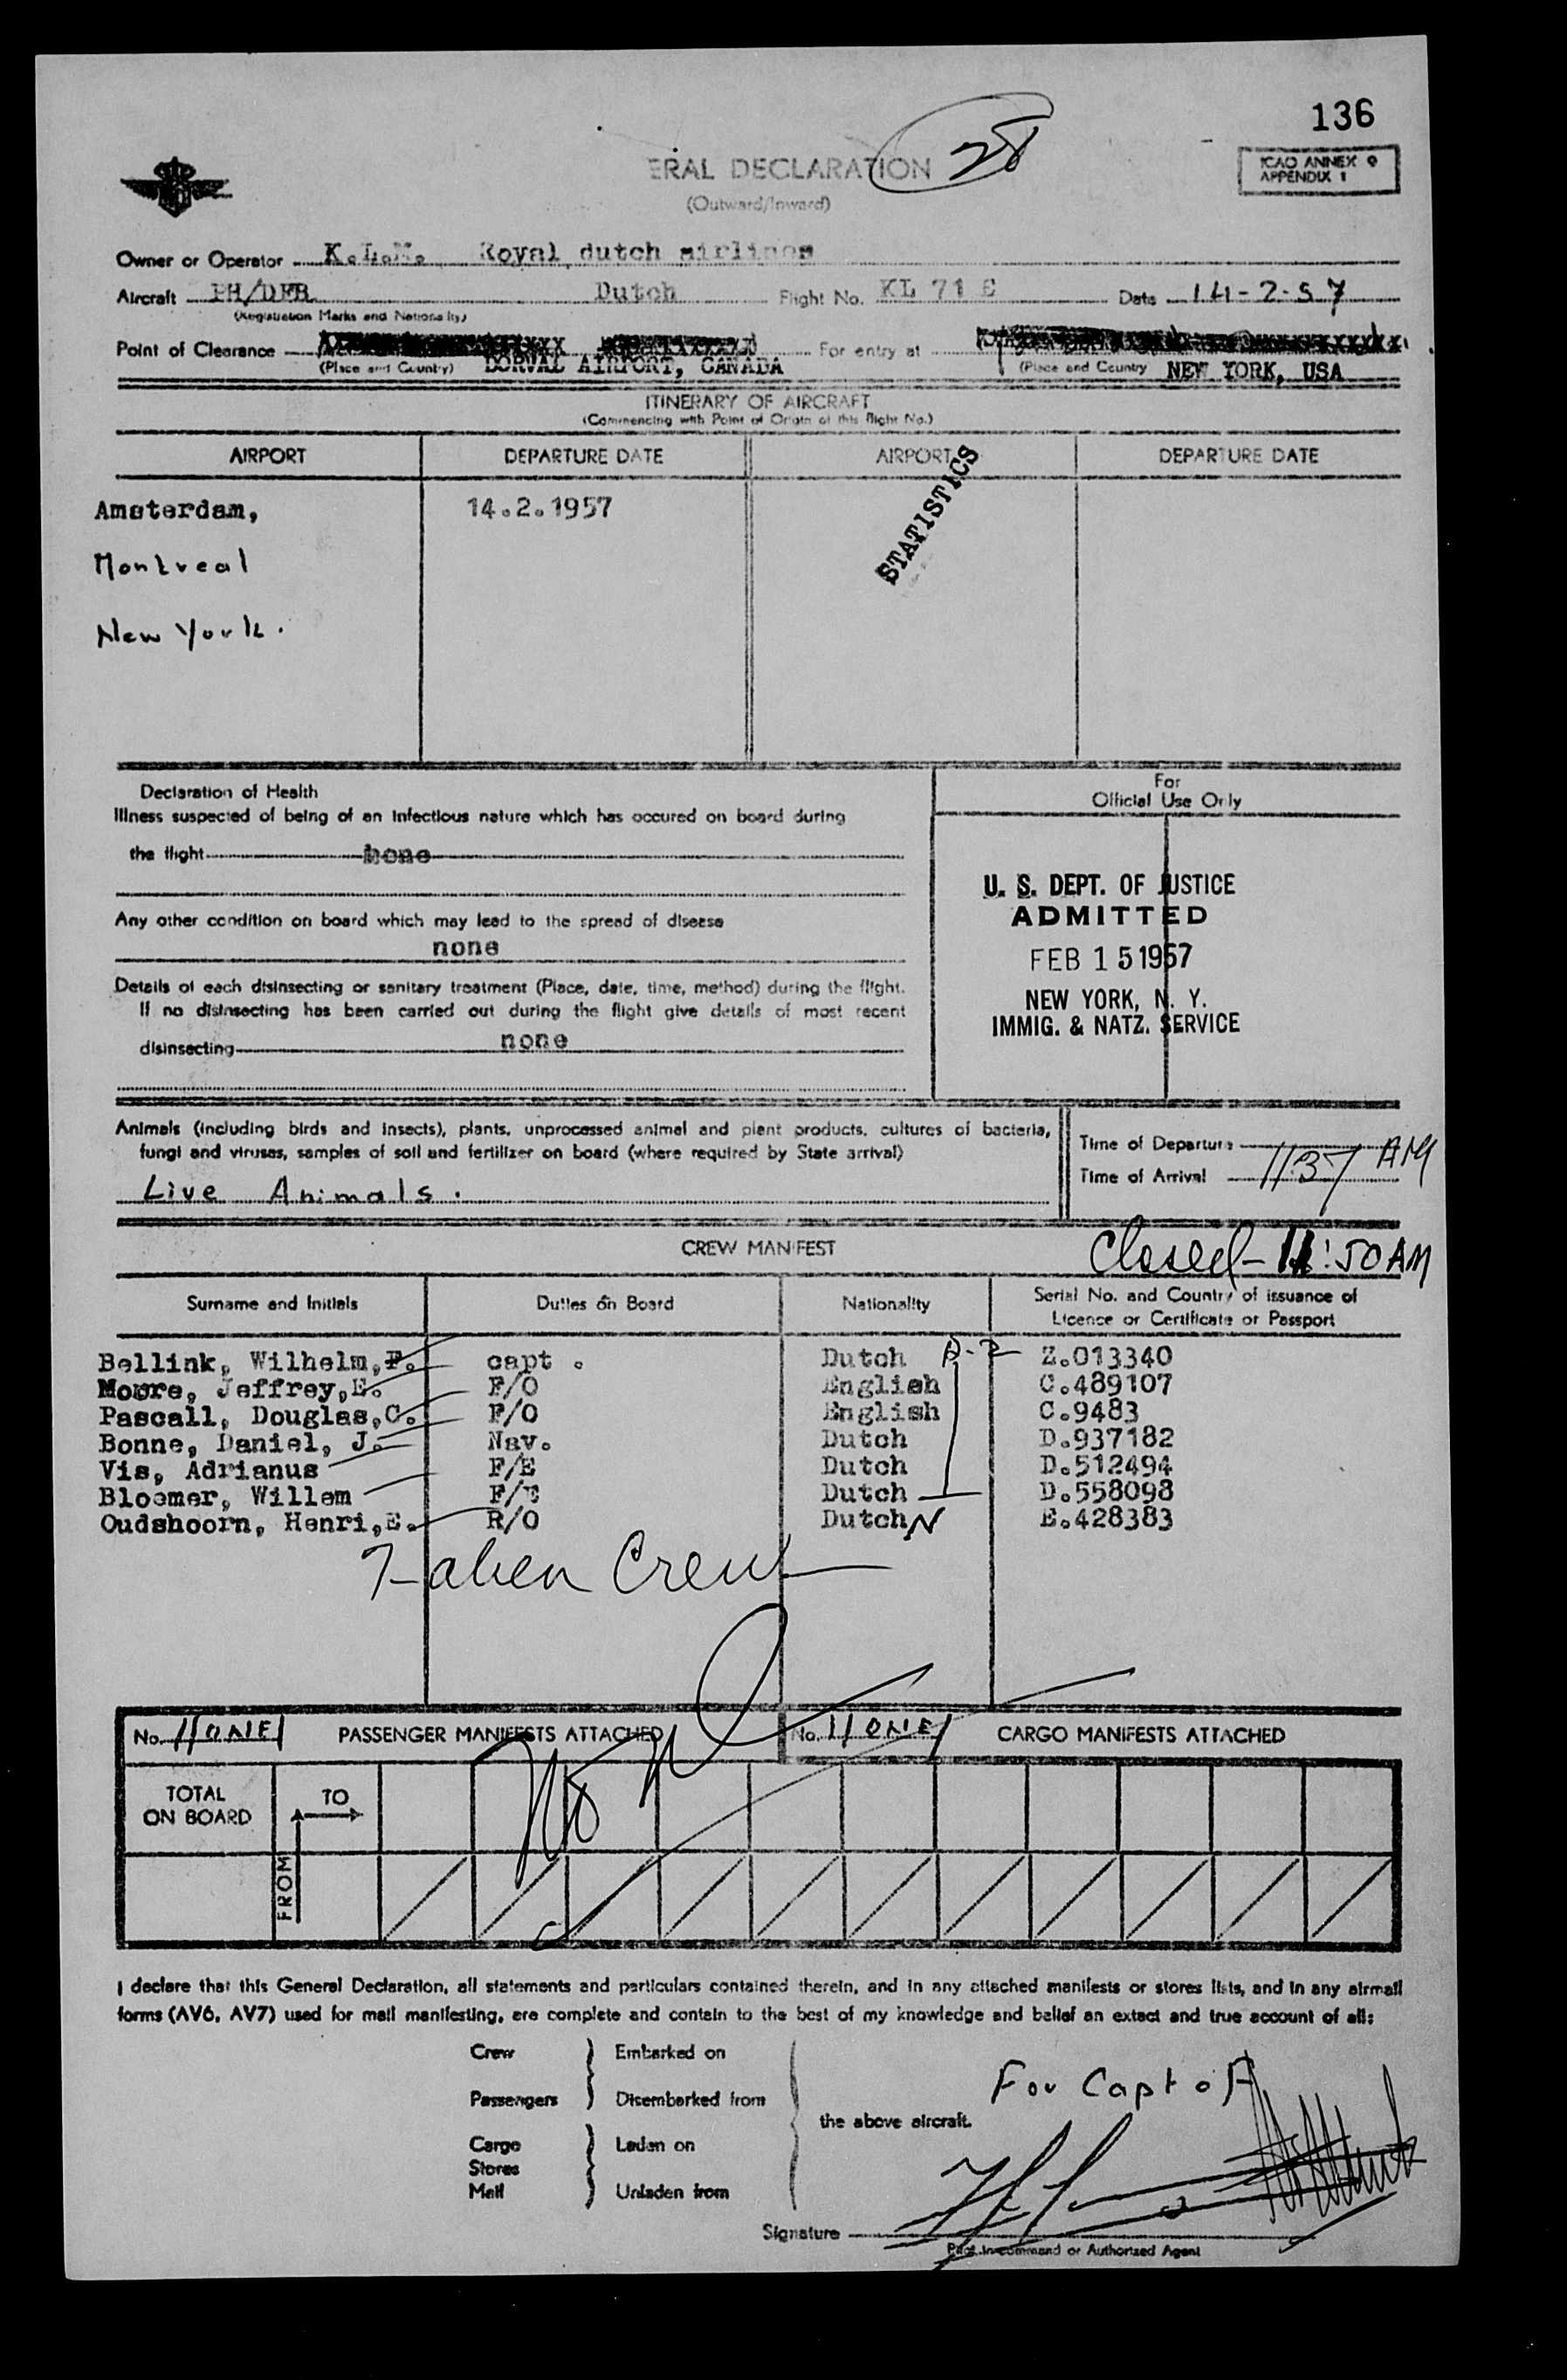 136
28
ERAL DECLARATION
(Outward/Inward)
ICAO ANNEX 9
APPENDIX 1
Owner or Operator K.L.M. Royal dutch airlines
Aircraft PH/DFB Dutch Flight No. KL 71 E Date 14-2-57
(Registration Marks and Nationality)
Point of Clearance For entry at
(Place and Country) DORVAL AIRPORT, CANADA (Place and Country NEW YORK, USA
ITINERARY OF AIRCRAFT
(Commencing with Point of Origin of this flight No.)
AIRPORT DEPARTURE DATE AIRPORT DEPARTURE DATE
STATISTICS
Amsterdam, 14.2.1957
Montreal
New York.
Declaration of Health
Illness suspected of being of an infectious nature which has occured on board during
the flight none
Any other condition on board which may lead to the spread of disease
none
Details of each disinsecting or sanitary treatment (Place, date, time, method) during the flight.
If no disinsecting has been carried out during the flight give details of most recent
disinsecting none
For
Official Use Only
U. S. DEPT. OF JUSTICE
ADMITTED
FEB 15 1957
NEW YORK, N. Y.
IMMIG. & NATZ. SERVICE
Animals (including birds and insects), plants, unprocessed animal and plant products, cultures of bacteria,
fungi and viruses, samples of soil and fertilizer on board (where required by State arrival)
Live Animals.
Time of Departure
Time of Arrival 1137 AM
CREW MANIFEST
Closed - 11:50 AM
Surname and Initials Duties on Board Nationality Serial No. and Country of issuance of
Licence or Certificate or Passport
Bellink, Wilhelm,F. capt . Dutch Z.013340
Moore, Jeffrey,E. F/O English C.489107
Pascall, Douglas,C. F/O English C.9483
Bonne, Daniel, J. Nav. Dutch D.937182
Vis, Adrianus F/E Dutch D.512494
Bloemer, Willem F/E Dutch D.558098
Oudshoorn, Henri,E. R/O Dutch N E.428383
7-alien Crew
No. 1/ONE/ PASSENGER MANIFESTS ATTACHED No. 1/ONE/ CARGO MANIFESTS ATTACHED
TOTAL
ON BOARD
TO
FROM
I declare that this General Declaration, all statements and particulars contained therein, and in any attached manifests or stores lists, and in any airmail
forms (AV6, AV7) used for mail manifesting, are complete and contain to the best of my knowledge and belief an extact and true account of all:
Crew Embarked on
Passengers Disembarked from
the above aircraft.
Cargo Laden on
Stores
Mail Unladen from
For Capt of
Signature
Pilot-in-command or Authorized Agent